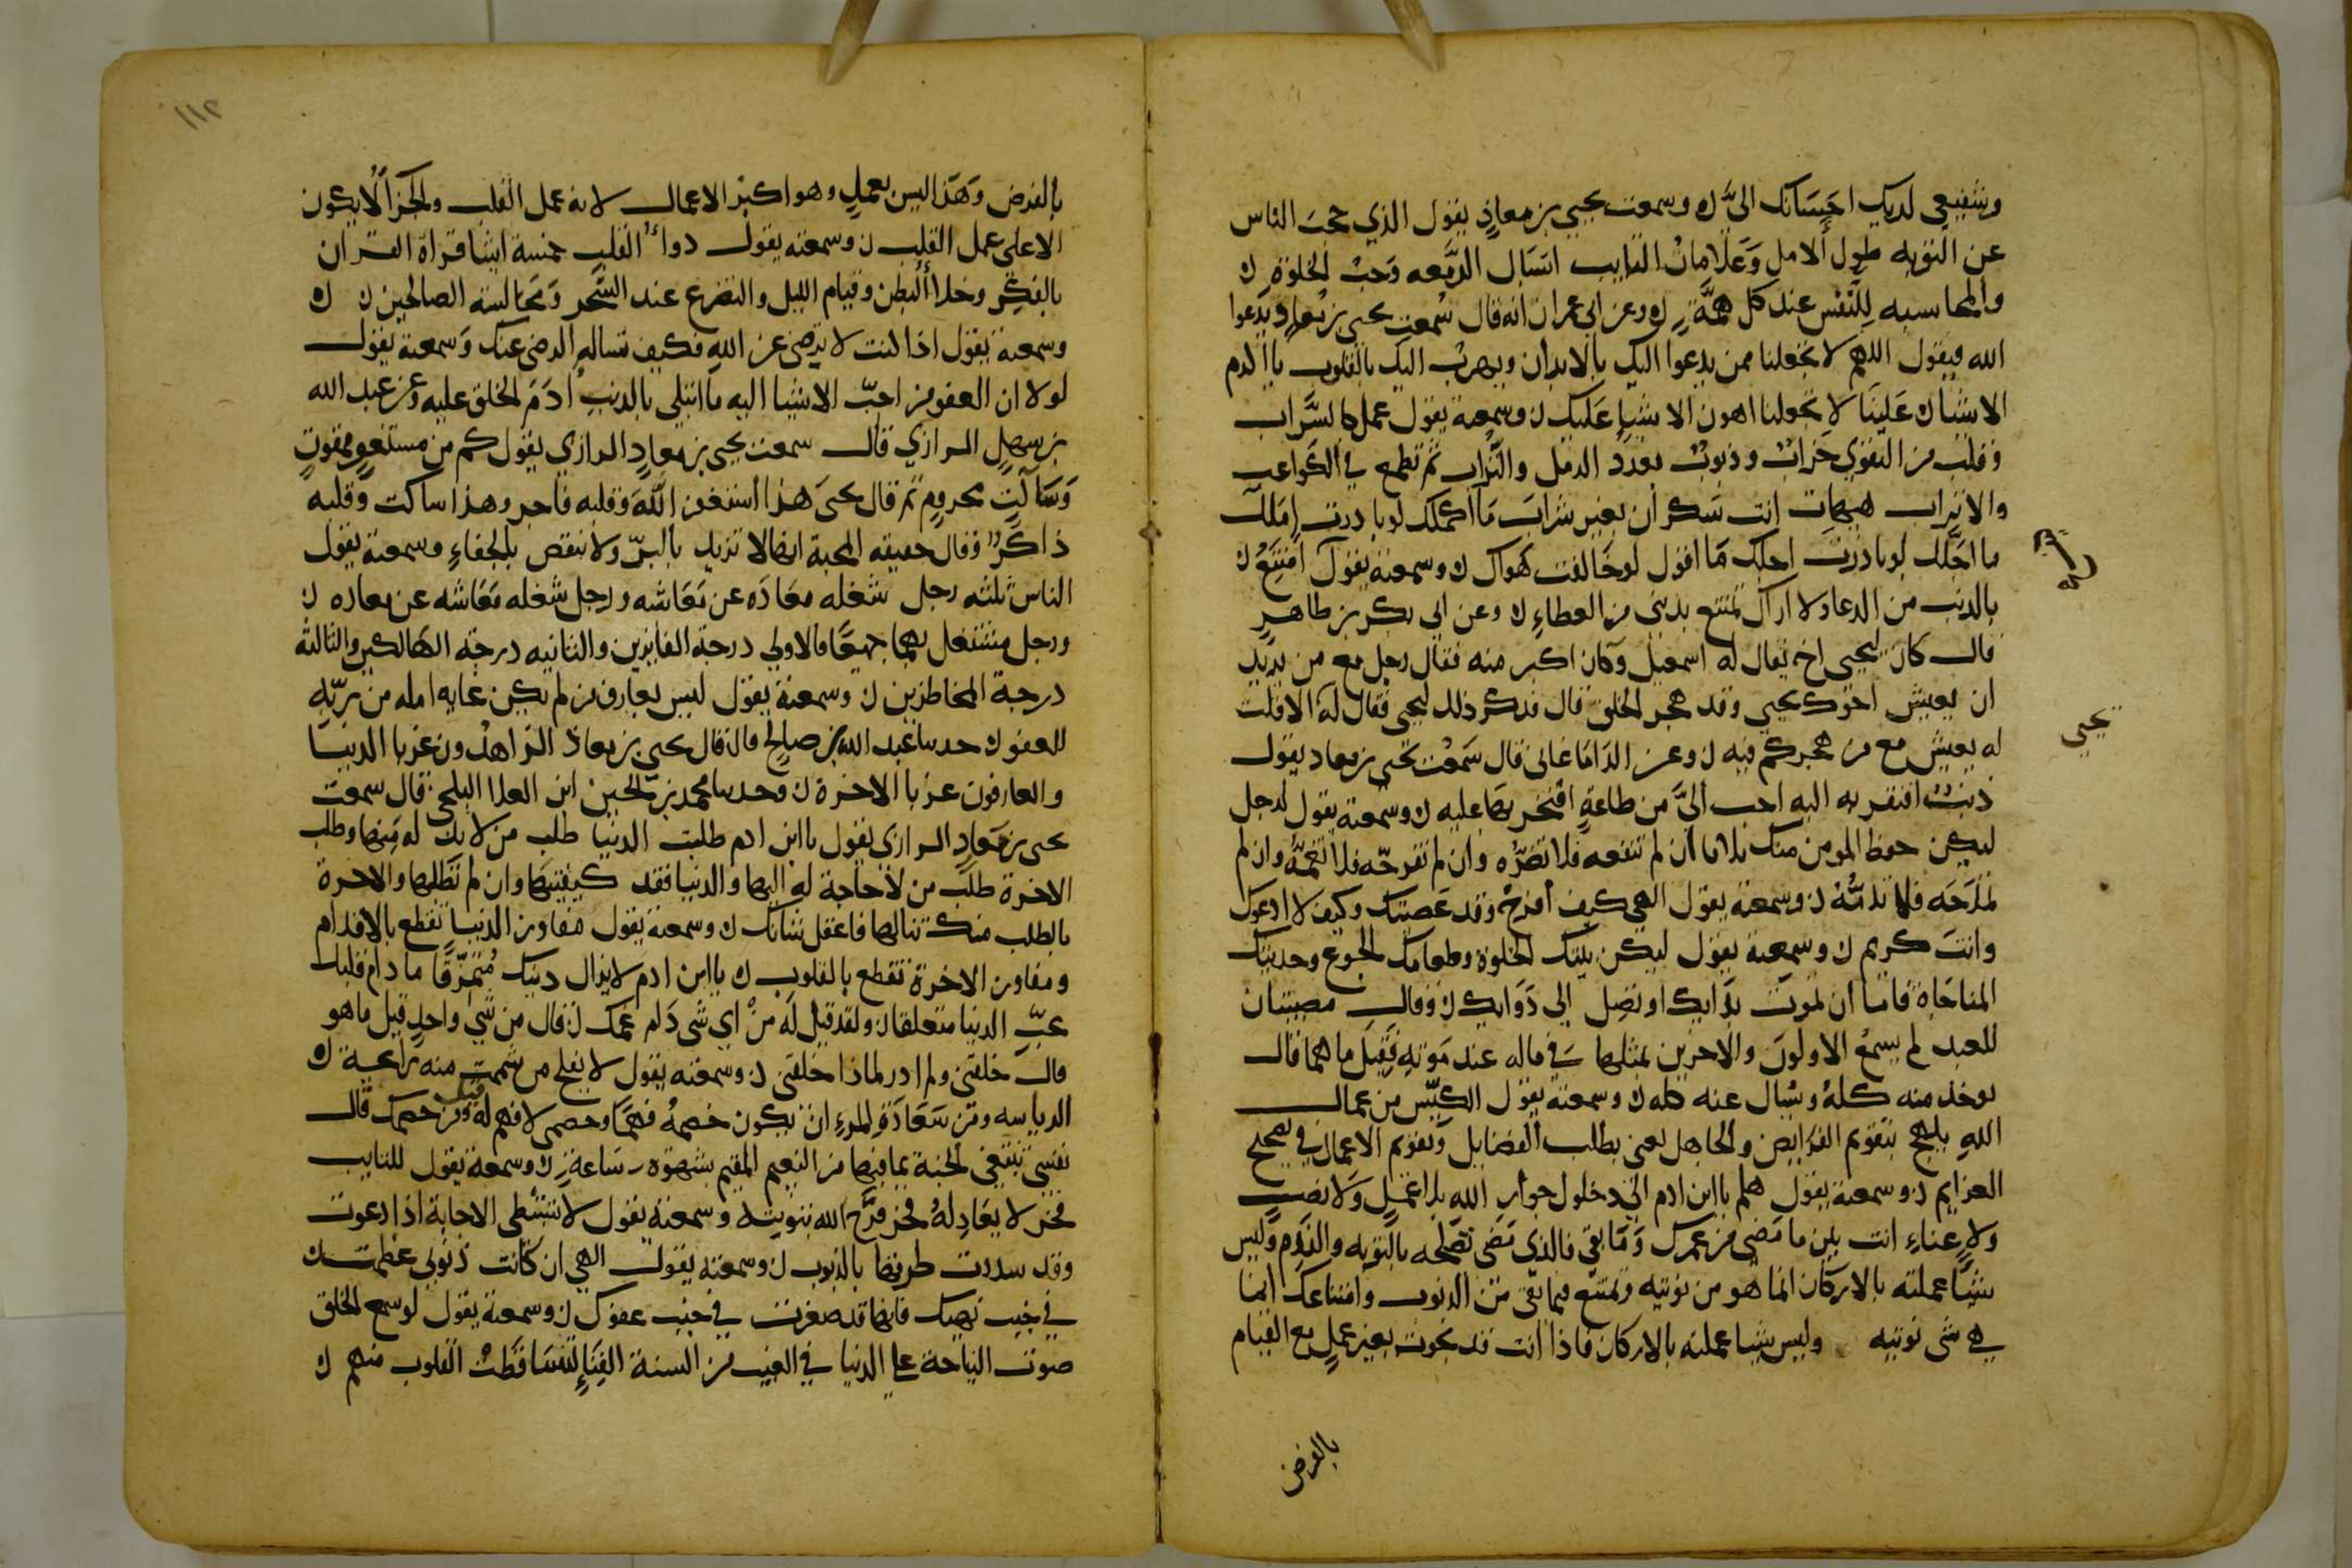 وشفيعي لديك احسانك الىّ ن وسمعت يحيى بن معاذٍ يقول الذي حجب الناس
عن التوبه طول الامل وعلامات التايب اسبال الدمعه وحب الخلوة ن
والمحاسبه للنفس عند كل همّةٍ ن وعن ابي عمران انه قال سمعت يحيى بن معاذ يدعوا
الله فيقول اللهم لا تجعلنا ممن يدعوا اليك بالابدان ويهرب اليك بالقلوب يا اكرم
الاشيا علينا لا تجعلنا اهون الاشيا عليك ن وسمعته يقول عمل كالسراب
وقلب من التقوى خراب وذنوب بعدد الرمل والتراب ثم تطمع في الكواعب
والاتراب هيهات انت سكران بغير شراب ما اكملك لو بادرت املك
ما اجلك لو بادرت اجلك ما اقول لو خالفت هواك ن وسمعته يقول
بالذنب من الدعا ولا اراك تمتنع بذنبي من العطاءِ ن وعن ابي بكر بن طاهرٍ
قال كان ليحيى اخ يقال له اسمعيل وكان اكبر منه فقال رجل مع من يريد
ان يعيش اخوك يحيى وقد هجر الخلق قال فذكر ذلك ليحيى فقال له الا قلت
يحيى
له يعيش مع من هجركم فيه ن وعن الدامغاني قال سمعت يحيى بن معاذ يقول
ذنب افتقر به اليه احب الىّ من طاعةٍ افتخر بها عليه ن وسمعته يقول لرجل
ليكن حظ المومن منك ثلاثا ان لم تنفعه فلا تضرّه وان لم تفرحه فلا تغمّه وان لم
تمدحه فلا تذمّه ن وسمعته يقول الهي كيف افرح وقد عصيتك وكيف لا ادعوك
وانت كريم ن وسمعته يقول ليكن بيتك الخلوة وطعامك الجوع وحديثك
المناجاة فاما ان تموت بدايك او تصل الى دوايك ن وقال مصيبتان
للعبد لم يسمع الاولون والاخرين بمثلها في ماله عند موته فقيل ما هما قال
يوخذ منه كلهُ ويسال عنه كله ن وسمعته يقول الكيّس من عمال
الله يلهج بتقويم الفرايض والجاهل يعنى بطلب الفضايل وتقويم الاعمال في تصحيح
العزايم ن وسمعته يقول هلم يا ابن ادم الى دخول جوار الله بلا عملٍ ولا نصبٍ
ولا عناءٍ انت بين ما مضى من عمرك وما بقى فالذي مضى تصلحه بالتوبه والندم وليس
شيًا عملته بالاركان انما هو من نويته وتمتنع فيما بقى من الذنوب وامتناعك انما
هي شى نويته وليس شيا عملته بالاركان فاذا انت قد نجوت بغير عملٍ مع القيام
بالفرض
١١٢
بالفرض وهذا ليس بعملٍ وهو اكبر الاعمال لانه عمل القلب والجزا لا يكون
الا على عمل القلب ن وسمعته يقول دواء القلب خمسة اشيا قراة القران
بالفكر وخلا البطن وقيام الليل والتضرع عند السحر ومجالسة الصالحين ن
وسمعته يقول اذا كنت لا ترضى عن الله فكيف تساله الرضى عنك وسمعته يقول
لولا ان العفو من احبّ الاشيا اليه ما ابتلى بالذنب ادم الخلق عليه وعن عبد الله
بن سهلٍ الرازي قال سمعت يحيى بن معاذٍ الرازي يقول كم من مستغفرٍ ممقوتٍ
وساكتٍ مرحومٍ ثم قال يحيى هذا استغفر اللّه وقلبه فاجر وهذا ساكت وقلبه
ذاكرٌ وقال حقيقه المحبة انها لا تزيد بالبرّ ولا تنقص بالجفاءِ وسمعته يقول
الناس ثلثه رجل شغله معاده عن معاشه ورجل شغله معاشه عن معاده ن
ورجل مشتغل بهما جميعًا فالاولى درجة الفايزين والثانيه درجة الهالكين والثالثة
درجة المخاطرين ن وسمعته يقول ليس بعارف من لم يكن غاية امله من ربّه
العفو ن حدثنا عبد الله بن صالحٍ قال قال يحيى بن معاذ الزاهدون غربا الدنيا
والعارفون غربا الاخرة ن وحدثنا محمد بن الحسين ابن العلا البلخى قال سمعت
يحيى بن معاذٍ الرازي يقول يا ابن ادم طلبت الدنيا طلب من لا بدّ له منها وطلب
الاخرة طلب من لا حاجة له اليها والدنيا فقد كفيتها وان لم تطلبها والاخرة
بالطلب منك تنالها فاعقل شانك ن وسمعته يقول مفاوز الدنيا تقطع بالاقدام
ومفاوز الاخرة تقطع بالقلوب ن يا ابن ادم لا يزال دينك متمزّقًا ما دام قلبك
بحبّ الدنيا متعلقا ن ولقد قيل له من اي شى دام غمك ن قال من شى واحدٍ قيل ما هو
قال خلقنى ولم ادر لماذا خلقنى ن وسمعته يقول لا يفلح من شممت منه رائحة ن
الرياسه ومن سعادة المرءِ ان يكون خصمهُ فهما وخصمى لا فهم له قيل ومن خصمك قال
نفسى تبيع الجنة بما فيها من النعيم المقيم بشهوة ساعةٍ ن وسمعته يقول للتايب
فخر لا يعادلهُ فخر فرّح الله بتوبته وسمعته يقول لا تستبطى الاجابة اذا دعوت
وقد سددت طرقها بالذنوب ن وسمعته يقول الهي ان كانت ذنوبي عظمت
في جنب نهيك فانها قد صغرت في جنب عفوك ن وسمعته يقول لو سمع الخلق
صوت النياحة على الدنيا في الغيب من السنة الفناءِ لتساقطت القلوب منهم ن